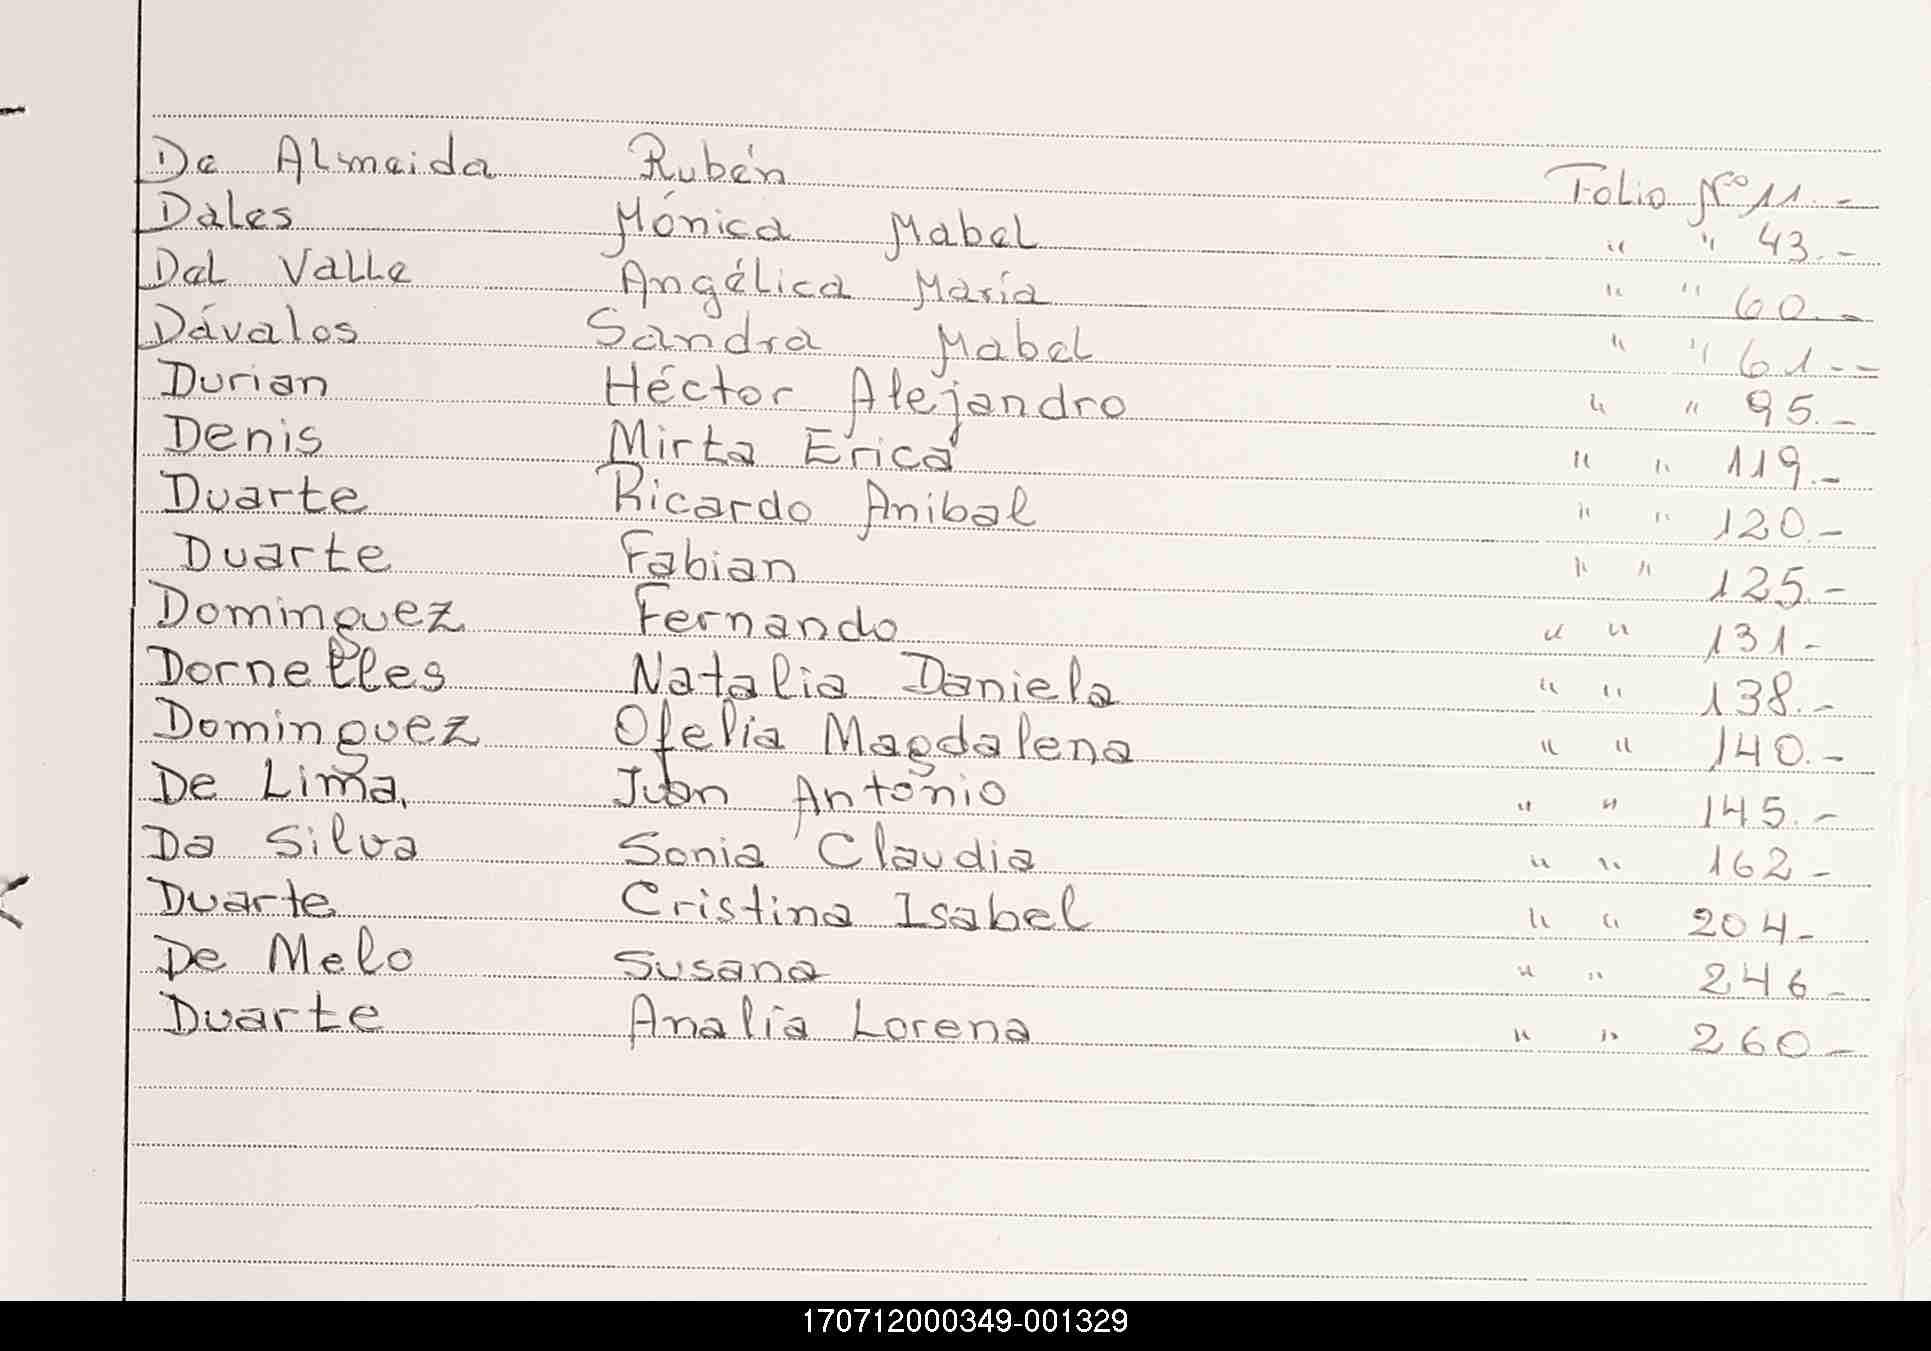 De Almeida Rubén Folio Nº 11.-
Dales Mónica Mabel " " 43.-
Del Valle Angélica María " " 60.-
Dávalos Sandra Mabel " " 61.--
Durian Héctor Alejandro " " 95.-
Denis Mirta Erica " " 119.-
Duarte Ricardo Anibal " " 120.-
Duarte Fabian " " 125.-
Dominguez Fernando " " 131-
Dornelles Natalia Daniela " " 138.-
Dominguez Ofelia Magdalena " " 140.-
De Lima, Juan Antonio " " 145.-
Da Silva Sonia Claudia " " 162-
Duarte Cristina Isabel " " 204-
De Melo Susana " " 246-
Duarte Analía Lorena " " 260-
170712000349-001329